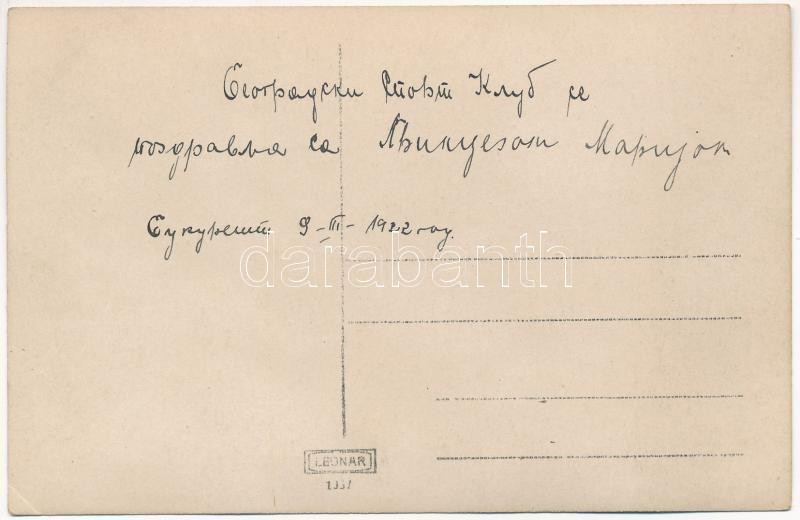 Београдски Спорт Клуб се
поздравља са Принцезом Маријом
Букурешт 9-III-1922 год.
darabanth
LEONAR